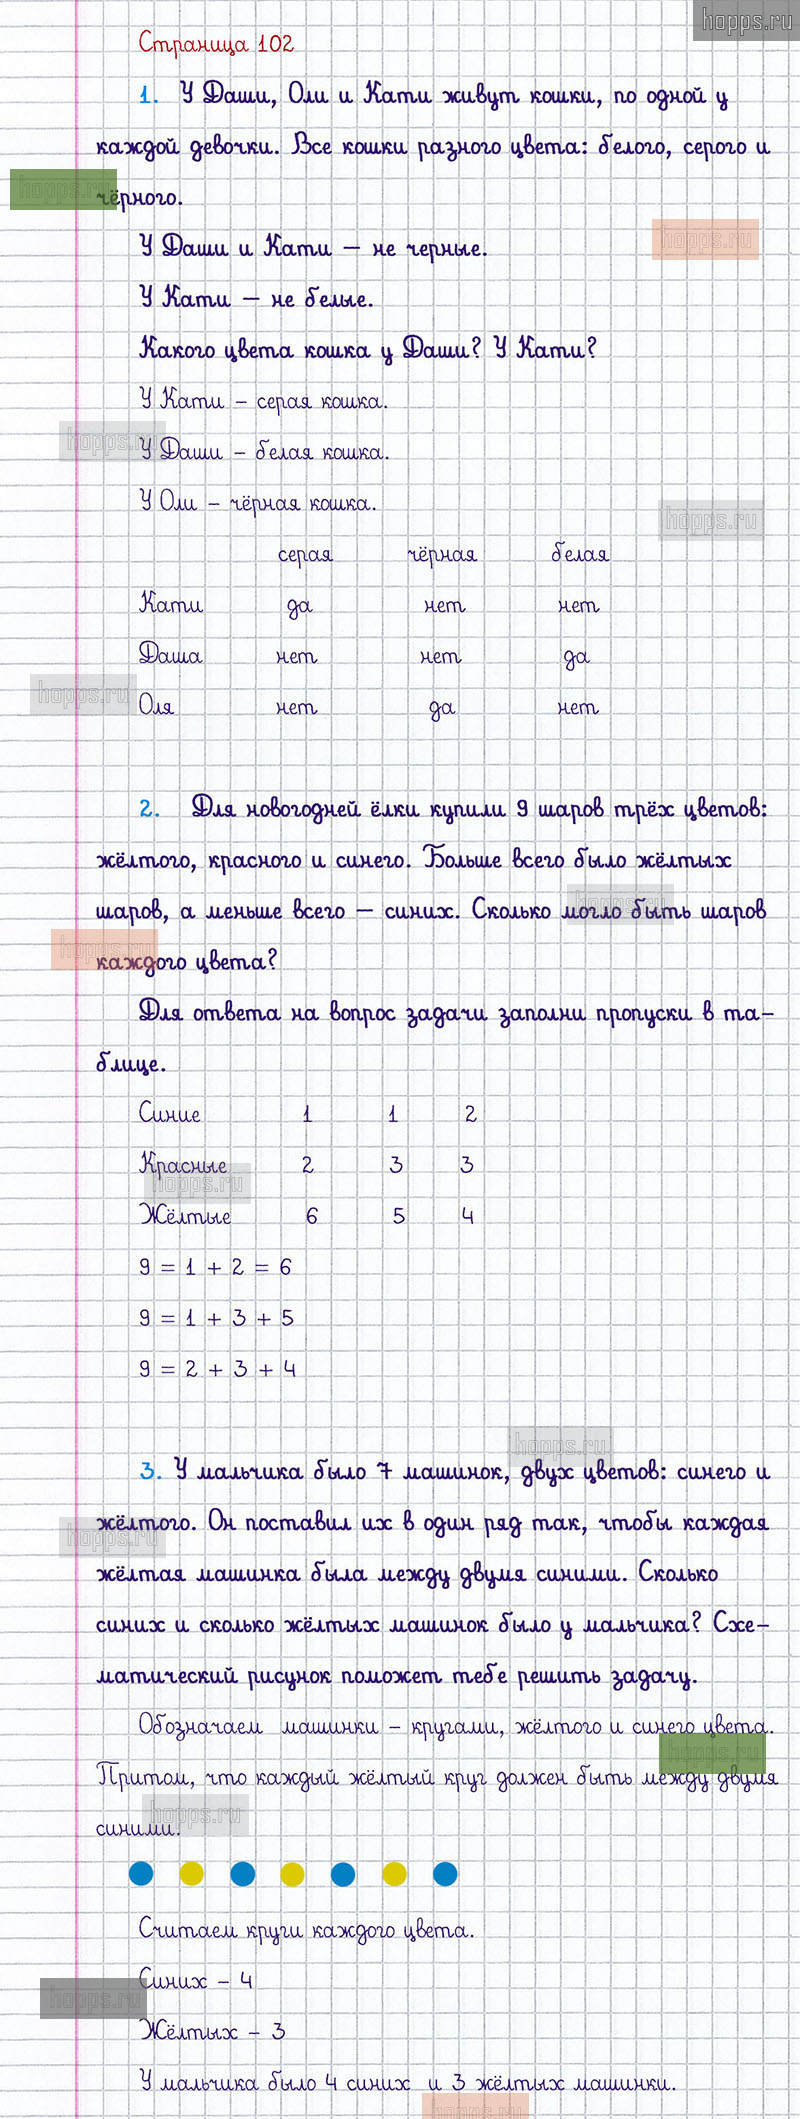 hopps.ru
Страница 102
1. У Даши, Оли и Кати живут кошки, по одной у
каждой девочки. Все кошки разного цвета: белого, серого и
hopps.ru
чёрного.
hopps.ru
У Даши и Кати – не черные.
У Кати – не белые.
Какого цвета кошка у Даши? У Кати?
У Кати – серая кошка.
hopps.ru
У Даши – белая кошка.
У Оли – чёрная кошка.
hopps.ru
серая чёрная белая
Кати да нет нет
Даша нет нет да
hopps.ru
Оля нет да нет
2. Для новогодней ёлки купили 9 шаров трёх цветов:
жёлтого, красного и синего. Больше всего было жёлтых
hopps.ru
шаров, а меньше всего – синих. Сколько могло быть шаров
hopps.ru
каждого цвета?
Для ответа на вопрос задачи заполни пропуски в та-
блице.
Синие 1 1 2
Красные 2 3 3
hopps.ru
Жёлтые 6 5 4
9 = 1 + 2 = 6
9 = 1 + 3 + 5
9 = 2 + 3 + 4
hopps.ru
3. У мальчика было 7 машинок, двух цветов: синего и
жёлтого. Он поставил их в один ряд так, чтобы каждая
hopps.ru
жёлтая машинка была между двумя синими. Сколько
синих и сколько жёлтых машинок было у мальчика? Схе-
матический рисунок поможет тебе решить задачу.
Обозначаем машинки – кругами, жёлтого и синего цвета.
hopps.ru
Притом, что каждый жёлтый круг должен быть между двумя
hopps.ru
синими.
Считаем круги каждого цвета.
Синих – 4
hopps.ru
Жёлтых – 3
У мальчика было 4 синих и 3 жёлтых машинки.
hopps.ru